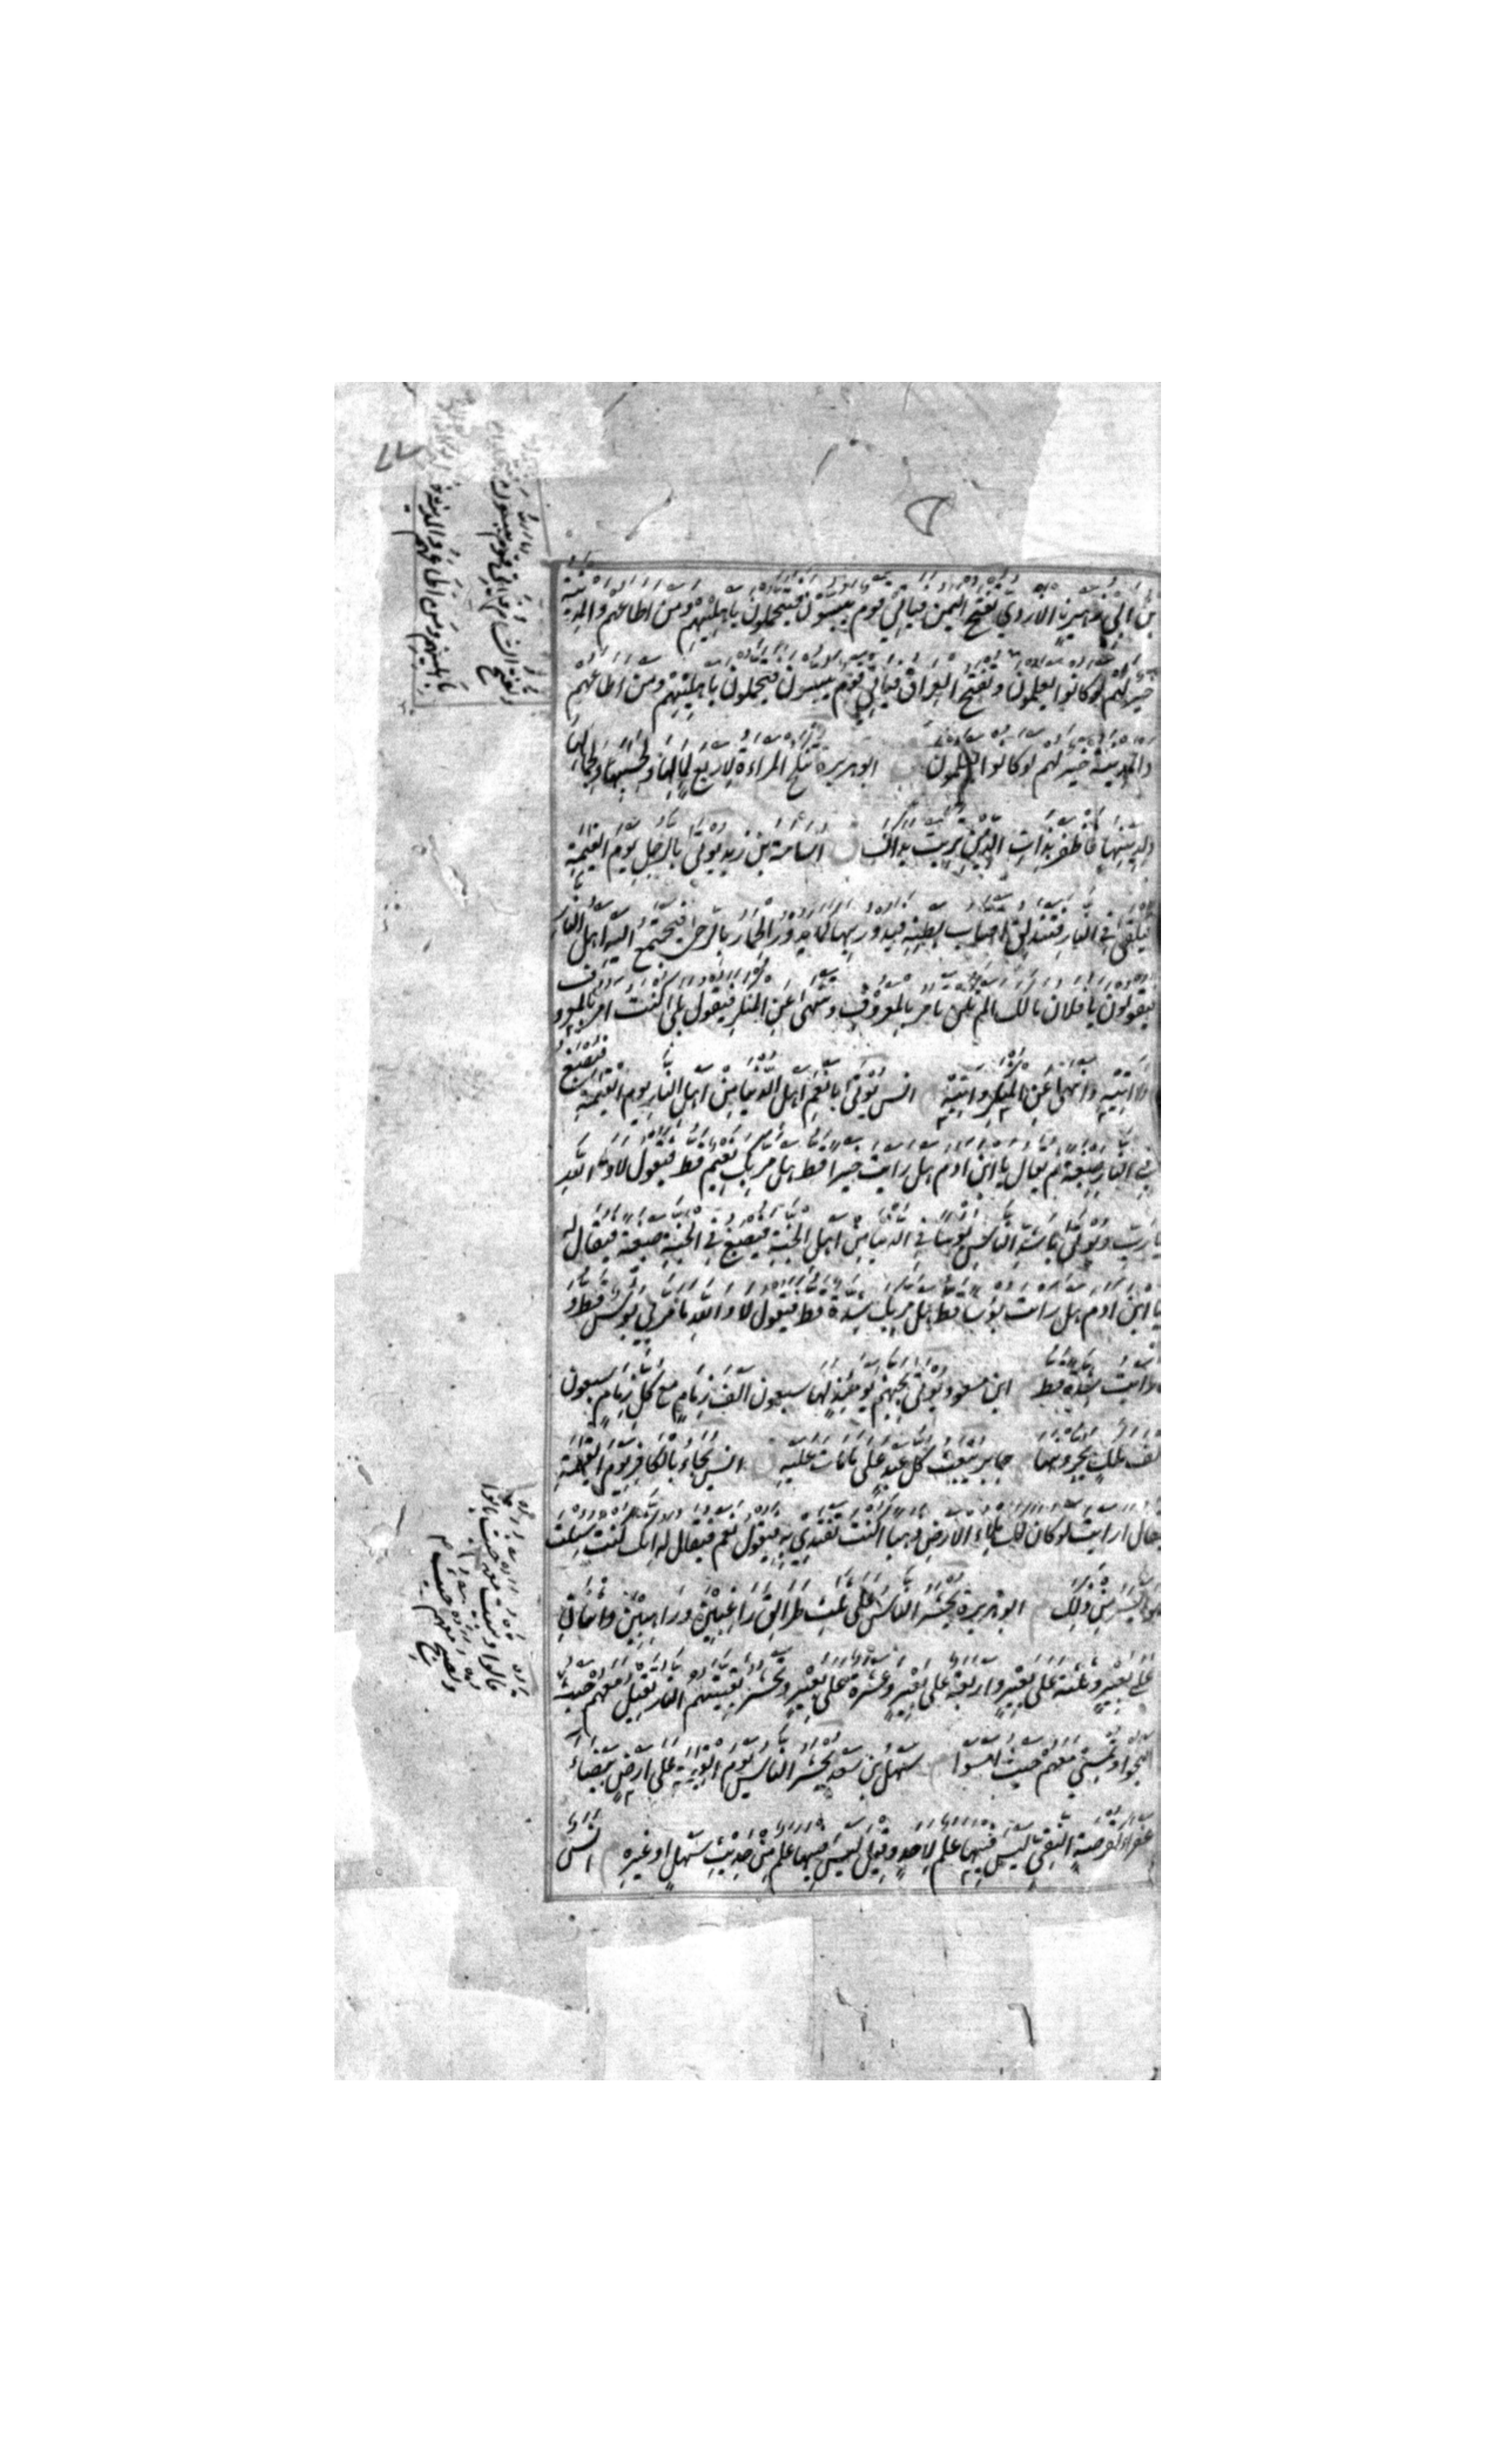 بن أبي زهير الأزدي تفتح اليمن فيأتي قوم يبسون فيتحملون بأهليهم ومن أطاعهم والمدينة
خير لهم لو كانوا يعلمون وتفتح العراق فيأتي قوم يبسون فيتحملون بأهليهم ومن أطاعهم
والمدينة خير لهم لو كانوا يعلمون ابو هريرة تنكح المراءة لاربع لمالها ولحسبها ولجمالها
ولدينها فاظفر بذات الدين تربت يداك اسامة بن زيد يؤتى بالرجل يوم القيمة
فيلقى في النار فتندلق اقتاب بطنه فيدور بها كما يدور الحمار بالرحى فيجتمع اليه اهل النار
فيقولون يا فلان مالك الم تكن تامر بالمعروف وتنهى عن المنكر فيقول بلى كنت امر بالمعروف
ولا اتيه وانهى عن المنكر واتيه انس يؤتى بانعم اهل الدنيا من اهل النار يوم القيمة فيصبغ
في النار صبغة ثم يقال يا ابن ادم هل رايت خيرا قط هل مر بك نعيم قط فيقول لا والله
يا رب ويؤتى باشد الناس بؤسا في الدنيا من اهل الجنة فيصبغ في الجنة صبغة فيقال له
يا ابن ادم هل رايت بؤسا قط هل مر بك شدة قط فيقول لا والله ما مر بي بؤس قط و
لا رايت شدة قط ابن مسعود يؤتى بجهنم يومئذ لها سبعون الف زمام مع كل زمام سبعون
الف ملك يجرونها جابر يبعث كل عبد على ما مات عليه انس يجاء بالكافر يوم القيمة
فيقال ارايت لو كان لك ملاء الارض ذهبا اكنت تفتدي به فيقول نعم فيقال له انك كنت سئلت
ما هو ايسر من ذلك ابو هريرة يحشر الناس على ثلث طرائق راغبين وراهبين واثنان
على بعير وثلثة على بعير واربعة على بعير وعشرة على بعير وتحشر بقيتهم النار تقيل معهم حيث
اصبحوا وتمسي معهم حيث امسوا سهل بن سعد يحشر الناس يوم القيمة على ارض بيضاء
عفراء كقرصة النقي ليس فيها علم لاحد وقيل ليس فيها علم من حديث سهل او غيره انس
وتفتح الشام فيأتي قوم يبسون فيتحملون
بأهليهم ومن أطاعهم والمدينة
قالوا وتبيت معهم حيث باتوا
وتصبح معهم حيث